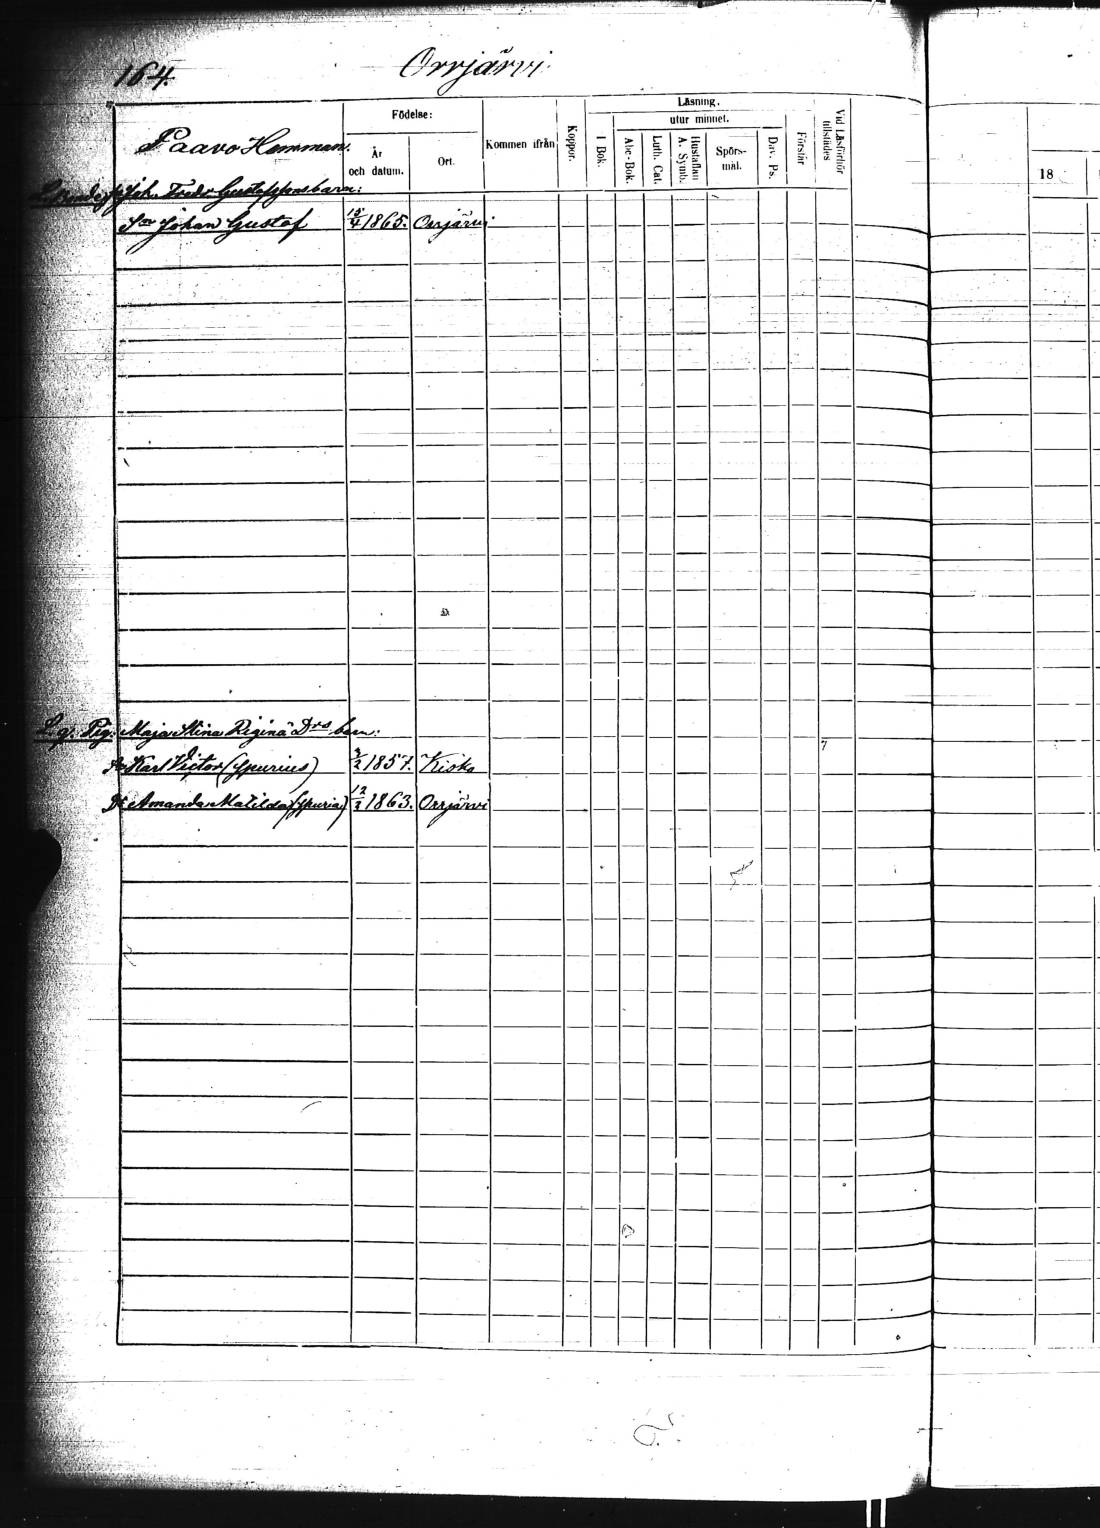 164.
Orrjärvi
Paavo Hemman.
Födelse:
År och datum.
Ort.
Kommen ifrån
Koppor.
Läsning.
utur minnet.
I Bok.
Abc-Bok.
Luth. Cat.
Hustaflan A. Symb.
Spörs-mål.
Dav. Ps.
Förstår
Vid Läsförhör tillstädes
18
Joh. Fredr. Gustafssons barn:
Son Johan Gustaf 15/4 1865. Orrjärvi
L. g. Pig. Maja Stina Regina Drs barn:
7
Karl Victor (Spurius) 1857. Kisko
Dr Amanda Matilda (Spuria) 1863. Orrjärvi